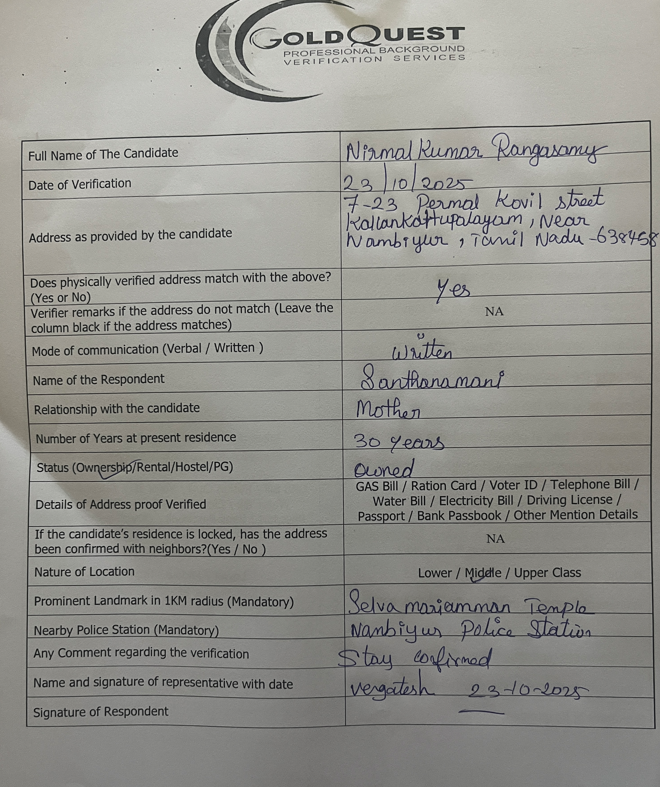 GOLDQUEST
PROFESSIONAL BACKGROUND
VERIFICATION SERVICES
Full Name of The Candidate
Nirmal Kumar Rangasamy
Date of Verification
23/10/2025
Address as provided by the candidate
7-23 Permal Kovil street
Kallankattupalayam, Near
Nambiyur, Tamil Nadu-638458
Does physically verified address match with the above?
(Yes or No)
Yes
Verifier remarks if the address do not match (Leave the
column black if the address matches)
NA
Mode of communication (Verbal / Written )
Written
Name of the Respondent
Santhanamani
Relationship with the candidate
Mother
Number of Years at present residence
30 years
Status (Ownership/Rental/Hostel/PG)
owned
Details of Address proof Verified
GAS Bill / Ration Card / Voter ID / Telephone Bill /
Water Bill / Electricity Bill / Driving License /
Passport / Bank Passbook / Other Mention Details
If the candidate's residence is locked, has the address
been confirmed with neighbors?(Yes / No )
NA
Nature of Location
Lower / Middle / Upper Class
Prominent Landmark in 1KM radius (Mandatory)
Selva mariamman Temple
Nearby Police Station (Mandatory)
Nambiyur Police Station
Any Comment regarding the verification
Stay confirmed
Name and signature of representative with date
vergatesh 23-10-2025
Signature of Respondent